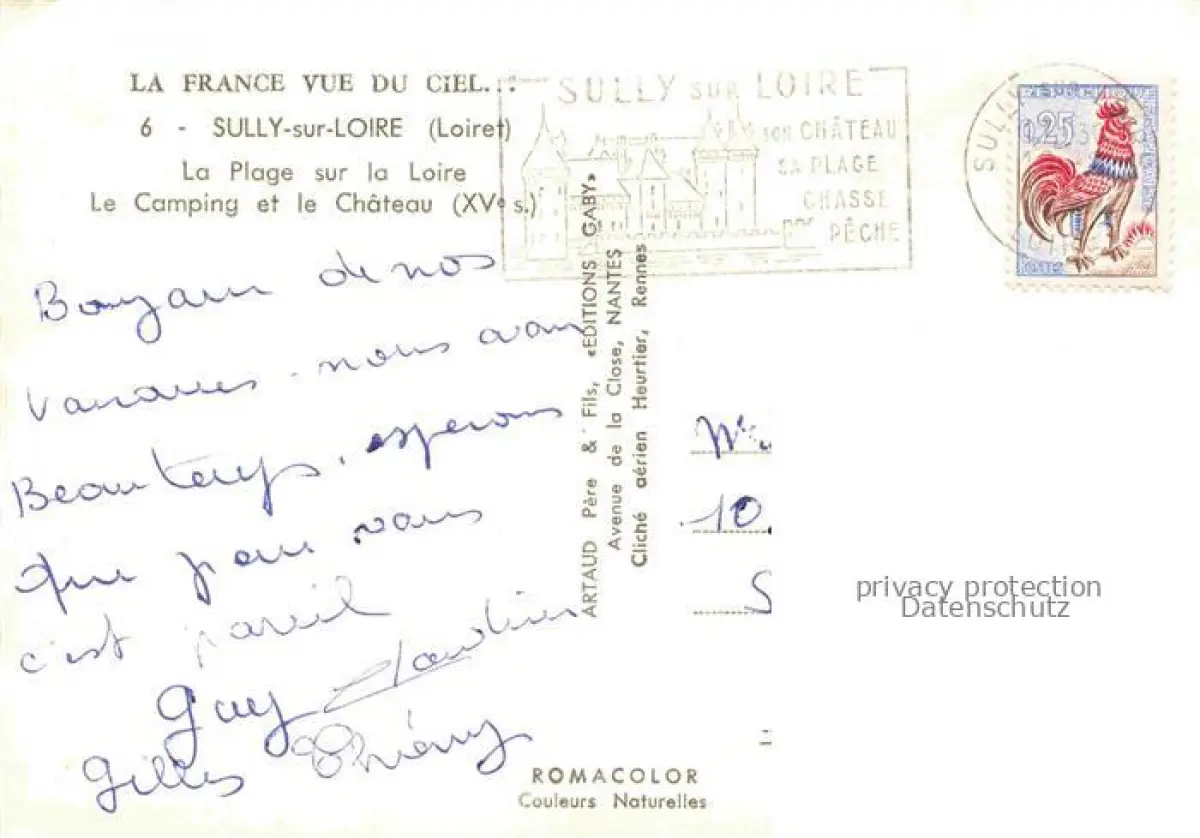 LA FRANCE VUE DU CIEL...
6 - SULLY-sur-LOIRE (Loiret)
La Plage sur la Loire
Le Camping et le Château (XVe s.)
SULLY SUR LOIRE
SON CHÂTEAU
SA PLAGE
CHASSE
PÊCHE
SULLY SUR
0,25
Bonjour de nos
vacances. nous avons
Beau temps. esperons
que pour vous
c'est pareil
Guy
Gilles Thierry
ARTAUD Père & Fils, «EDITIONS GABY»
Avenue de la Close, NANTES
Cliché aérien Heurtier, Rennes
10
S
privacy protection
Datenschutz
ROMACOLOR
Couleurs Naturelles